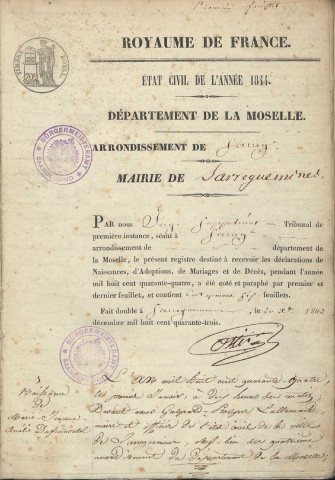 Première feuille
TIMBRE ROYAL
20c
ROYAUME DE FRANCE.
ÉTAT CIVIL DE L'ANNÉE 1844.
DÉPARTEMENT DE LA MOSELLE.
ARRONDISSEMENT DE
BÜRGERMEISTERAMT
MAIRIE DE Sarreguemines
PAR nous Juge Suppléant au Tribunal de
première instance, séant à
arrondissement de département de
la Moselle, le présent registre destiné à recevoir les déclarations de
Naissances, d'Adoptions, de Mariages et de Décès, pendant l'année
mil huit cent quarante-quatre, a été coté et paraphé par premier et
dernier feuillets, et contient feuillets.
Fait double à Sarreguemines, le 20 Xbre 1843
décembre mil huit cent quarante-trois.
BÜRGERMEISTERAMT
L'An mil huit cent quarante-quatre
Naissance le premier Janvier, à dix heures du matin,
de Devant nous Gaspard Lallemand
Marie Jeanne maire et officier de l'état civil de la ville
Amélie de Sarreguemines, chef-lieu du quatrième
arrondissement du Département de la Moselle